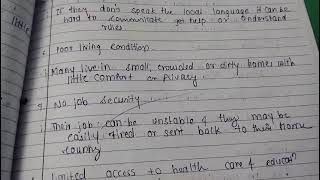 If they don't speak the local language it can be
hard to communicate get help or understand
rules.
Poor living condition
Many live in small, crowded or dirty homes with
little comfort or privacy
No job security
Their job can be unstable & they may be
easily fired or sent back to their home
country
Limited access to health care & educati